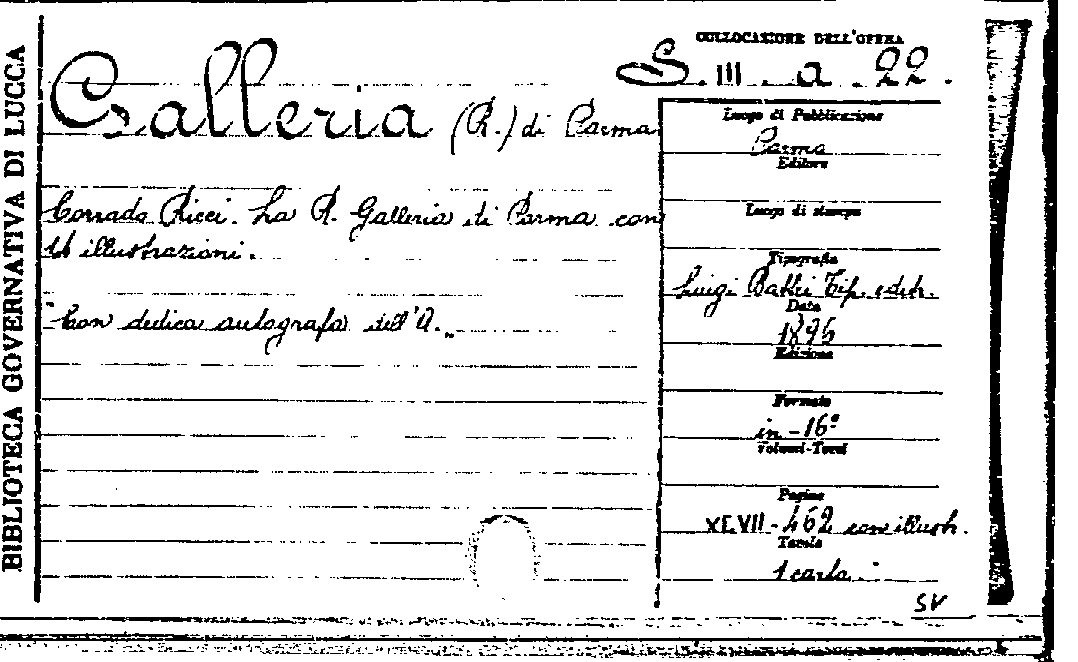 BIBLIOTECA GOVERNATIVA DI LUCCA
COLLOCAZIONE DELL'OPERA
S. III. a. 22.
Galleria (R.) di Parma
Corrado Ricci. La R. Galleria di Parma con
illustrazioni.
"Con dedica autografa dell'A.„
Luogo di Pubblicazione
Parma
Editore
Luogo di stampa
Tipografia
Luigi Battei Tip. edit.
Data
1896
Edizione
Formato
in-16º
Volumi-Tomi
Pagine
XLVII-462 con illustr.
Tavole
1 carta.
SV